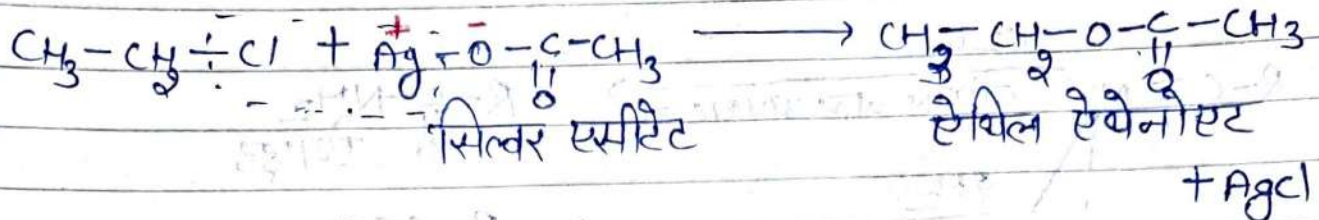 CH₃-CH₂-Cl + Ag⁺-O⁻-C-CH₃ ⟶ CH₃-CH₂-O-C-CH₃
|| ||
O O
सिल्वर एसीटेट ऐथिल ऐथेनोएट
+ AgCl